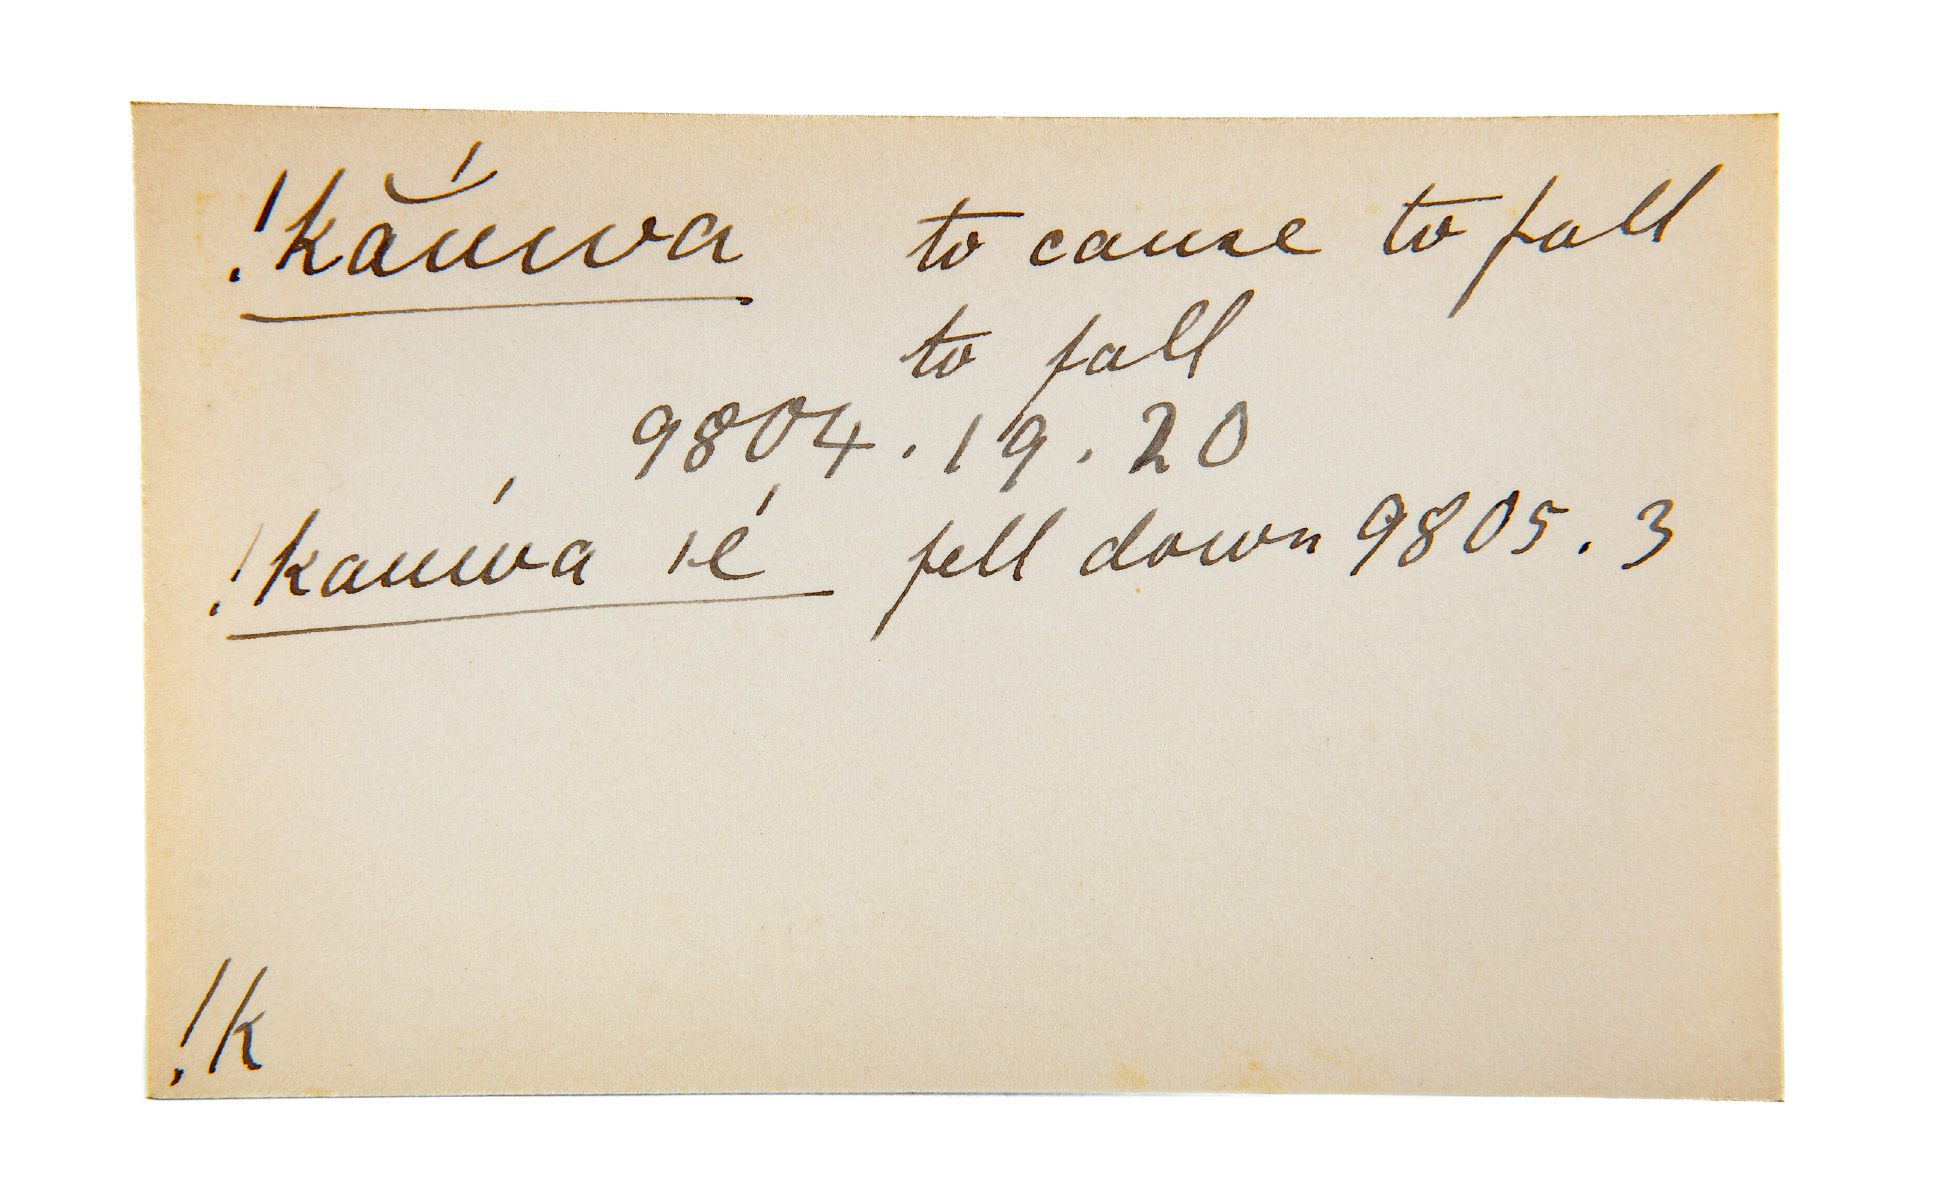 !kăúwa to cause to fall
to fall
9804.19.20
!kaúwa ıé fell down 9805.3
!k